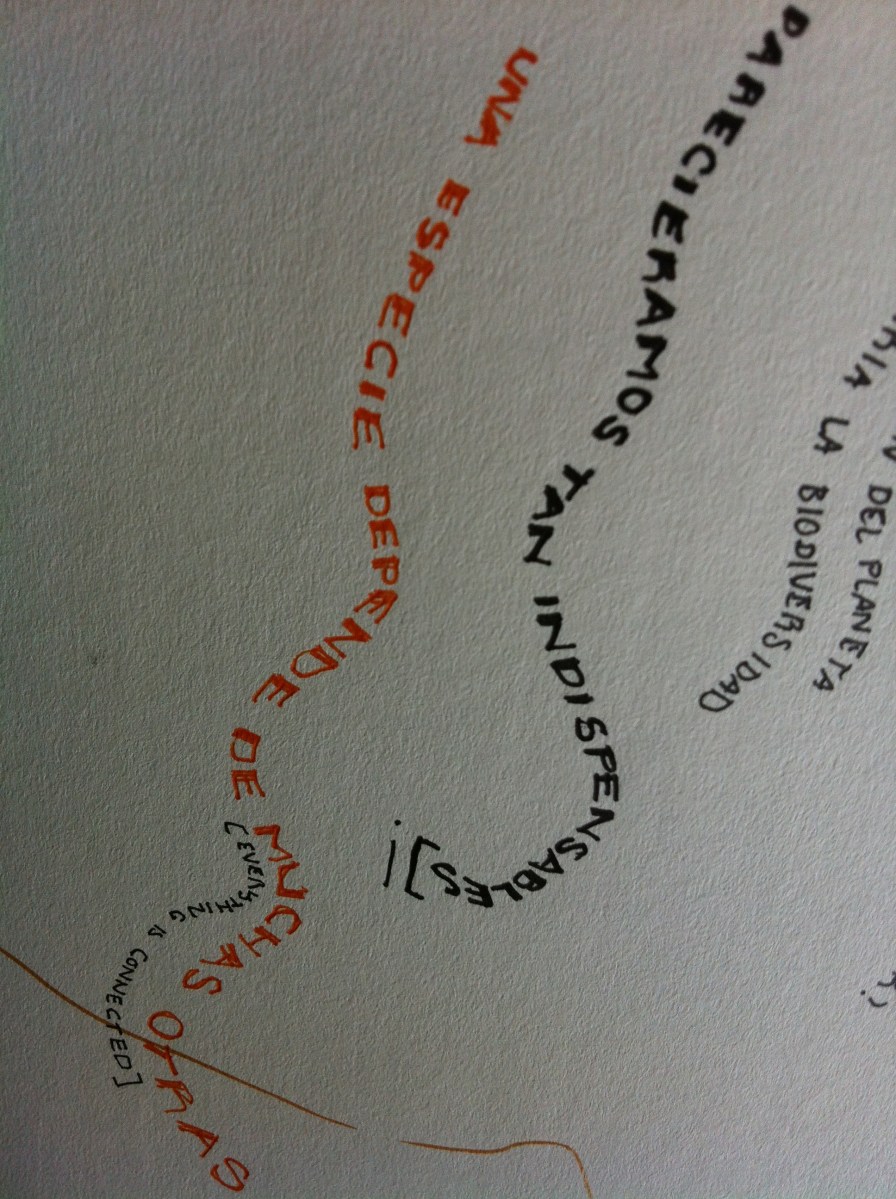 DEL PLANETA
LA BIODIVERSIDAD
PARECIERAMOS TAN INDISPENSABLES]!
UNA ESPECIE DEPENDE DE MUCHAS OTRAS
[EVERYTHING IS CONNECTED]